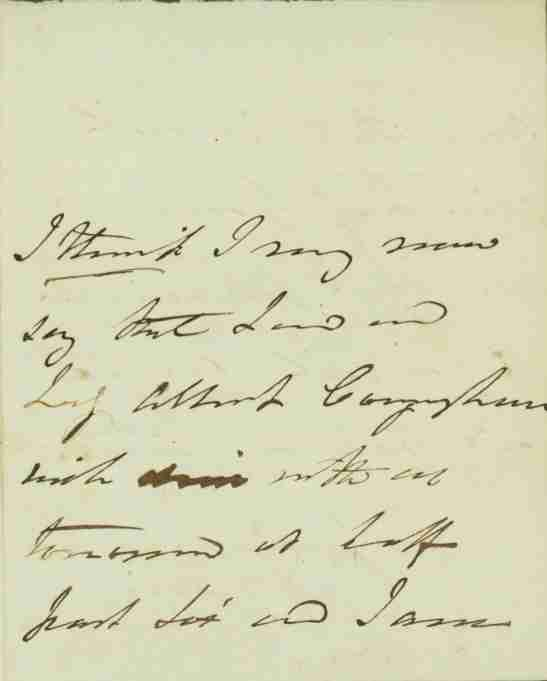 I think I may now
say that Lord and
Lady Albert Conyngham
will dine with us
tomorrow at half
past six and I am